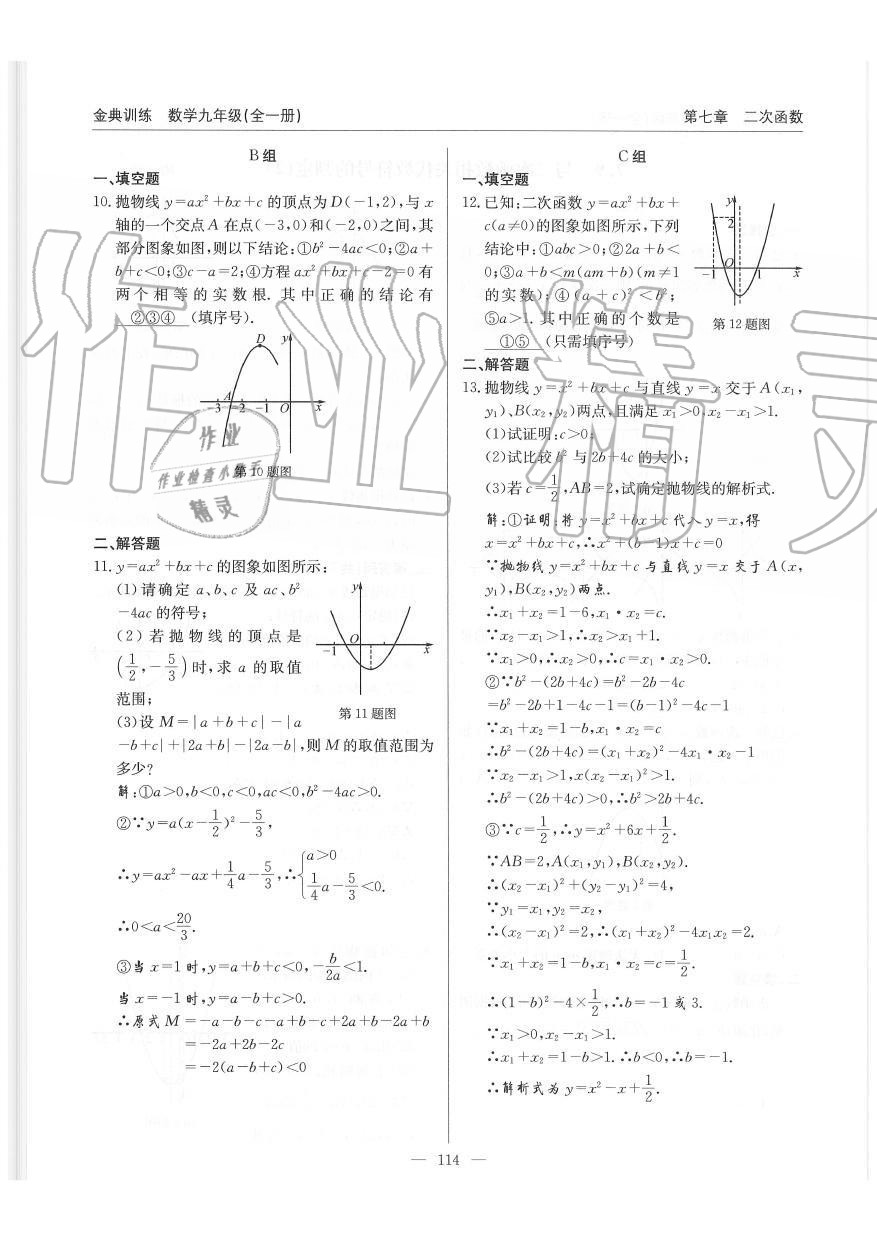 金典训练 数学九年级(全一册)
第七章 二次函数
B组
一、填空题
10.抛物线 y=ax²+bx+c 的顶点为 D(-1,2),与 x
轴的一个交点 A 在点(-3,0)和(-2,0)之间,其
部分图象如图,则以下结论:①b²-4ac<0;②a+
b+c<0;③c-a=2;④方程 ax²+bx+c-2=0 有
两个相等的实数根. 其中正确的结论有
②③④ (填序号).
D y
A
-3 -2 -1 O x
第10题图
二、解答题
11. y=ax²+bx+c 的图象如图所示:
(1)请确定 a、b、c 及 ac、b²
-4ac 的符号;
(2)若抛物线的顶点是
(1/2,-5/3)时,求 a 的取值
范围;
(3)设 M=|a+b+c|-|a
-b+c|+|2a+b|-|2a-b|,则 M 的取值范围为
多少?
y
-1 O x
第11题图
解:①a>0,b<0,c<0,ac<0,b²-4ac>0.
②∵y=a(x-1/2)²-5/3,
∴y=ax²-ax+1/4a-5/3,∴{a>0
1/4a-5/3<0.
∴0<a<20/3.
③当 x=1 时,y=a+b+c<0,-b/2a<1.
当 x=-1 时,y=a-b+c>0.
∴原式 M =-a-b-c-a+b-c+2a+b-2a+b
=-2a+2b-2c
=-2(a-b+c)<0
C组
一、填空题
12.已知:二次函数 y=ax²+bx+
c(a≠0)的图象如图所示,下列
结论中:①abc>0;②2a+b<
0;③a+b<m(am+b)(m≠1
的实数);④(a+c)²<b²;
⑤a>1. 其中正确的个数是
①⑤ (只需填序号)
y
2
O
-1 1 x
第12题图
二、解答题
13.抛物线 y=x²+bx+c 与直线 y=x 交于 A(x₁,
y₁)、B(x₂,y₂)两点,且满足 x₁>0,x₂-x₁>1.
(1)试证明:c>0;
(2)试比较 b² 与 2b+4c 的大小;
(3)若 c=1/2,AB=2,试确定抛物线的解析式.
解:①证明:将 y=x²+bx+c 代入 y=x,得
x=x²+bx+c,∴x²+(b-1)x+c=0
∵抛物线 y=x²+bx+c 与直线 y=x 交于 A(x,
y₁),B(x₂,y₂)两点.
∴x₁+x₂=1-6,x₁·x₂=c.
∵x₂-x₁>1,∴x₂>x₁+1.
∵x₁>0,∴x₂>0,∴c=x₁·x₂>0.
②∵b²-(2b+4c)=b²-2b-4c
=b²-2b+1-4c-1=(b-1)²-4c-1
∵x₁+x₂=1-b,x₁·x₂=c
∴b²-(2b+4c)=(x₁+x₂)²-4x₁·x₂-1
∵x₂-x₁>1,x(x₂-x₁)²>1.
∴b²-(2b+4c)>0,∴b²>2b+4c.
③∵c=1/2,∴y=x²+6x+1/2.
∵AB=2,A(x₁,y₁),B(x₂,y₂).
∴(x₂-x₁)²+(y₂-y₁)²=4,
∵y₁=x₁,y₂=x₂,
∴(x₂-x₁)²=2,∴(x₁+x₂)²-4x₁x₂=2.
∵x₁+x₂=1-b,x₁·x₂=c=1/2.
∴(1-b)²-4×1/2,∴b=-1 或 3.
∵x₁>0,x₂-x₁>1.
∴x₁+x₂=1-b>1.∴b<0,∴b=-1.
∴解析式为 y=x²-x+1/2.
— 114 —
作业精灵
作业
作业检查小帮手
精灵